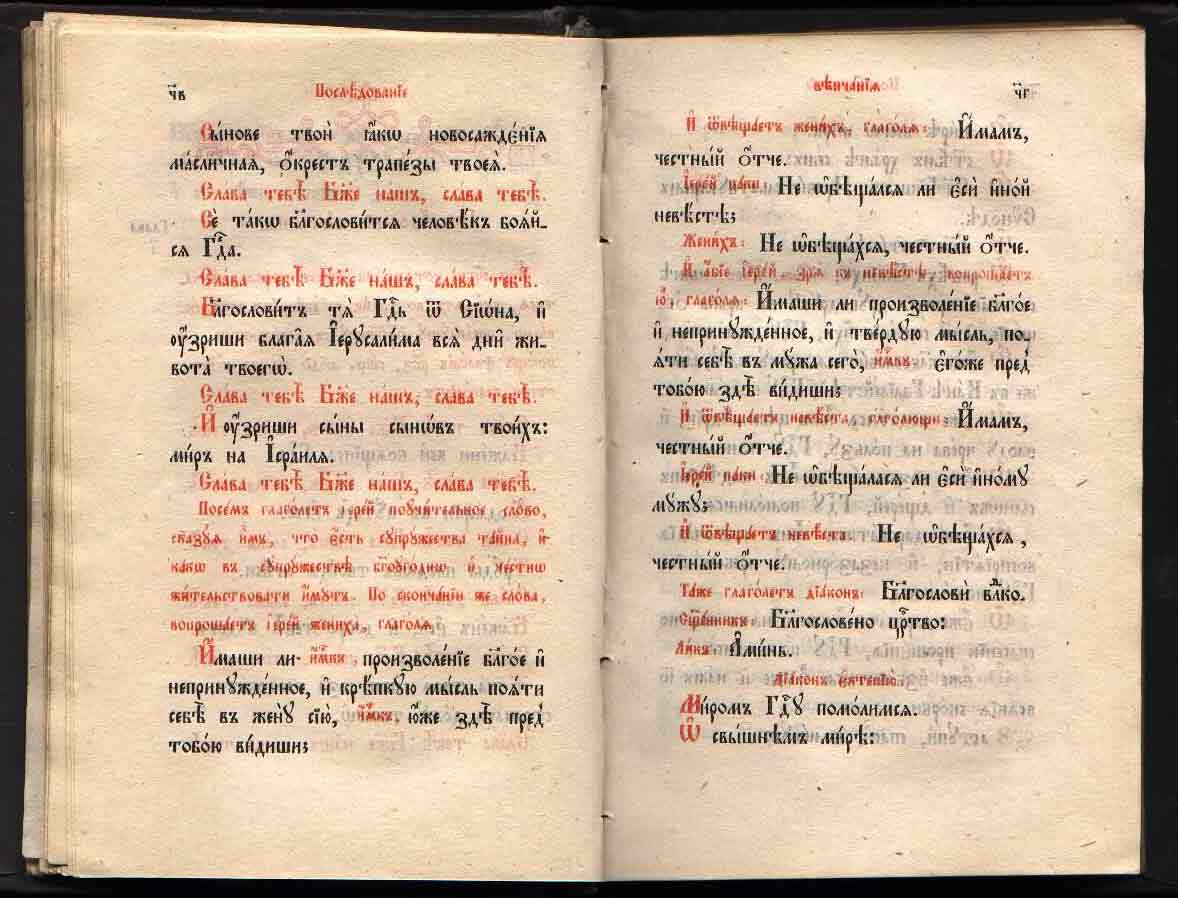 ч҃в
Послѣдованїе
Сы́нове твоѝ ꙗ҆́кѡ новосаждє́нїѧ
ма́сличнаѧ, ѻ҆́крестъ трапе́зы твоеѧ̀.
Слава тебѣ̀ Бж҃е нашъ, слава тебѣ̀.
Сѐ та́кѡ бл҃гослови́тсѧ человѣ́къ боѧ́й-
сѧ Гдⷭ҇а.
Сла́ва тебѣ̀ Бж҃е на́шъ, сла́ва тебѣ̀.
Бл҃гослови́тъ тѧ̀ Гдⷭ҇ь ѿ Сїѡ́на, и҆
ᲂу҆́зриши благаѧ І҆ерусали́ма всѧ̑ днѝ жи-
вота̀ твоегѡ̀.
Сла́ва тебѣ̀ Бж҃е на́шъ, сла́ва тебѣ̀.
И҆ ᲂу҆́зриши сы́ны сынѡ́въ твои́хъ:
ми́ръ на І҆сра́илѧ.
Сла́ва тебѣ̀ Бж҃е на́шъ, сла́ва тебѣ̀.
Посе́мъ глаголетъ і҆ере́й поꙋчи́тельное сло́во,
сказꙋ́ѧ и҆̀мъ, что̀ є҆́сть сꙋпрꙋжества та́йна, и҆
ка́кѡ въ сꙋпрꙋжествѣ̀ бг҃оꙋгоднѡ и҆ че́стнѡ
жи́тельствовати и҆́мꙋтъ. По сконча́нїи же сло́ва,
вопроша́етъ і҆ере́й жениха̀, глаго́лѧ:
И҆́маши ли и҆́м҃къ, произволе́нїе бл҃го́е и҆
непринꙋжде́нное, и҆ крѣ́пкꙋю мы́сль поѧ́ти
себѣ̀ въ женꙋ̀ сїю̀, и҆́м҃къ, ю҆́же здѣ̀ пред̾
тобо́ю ви́диши;
вѣнча́нїѧ
ч҃г
И҆ ѿвѣща́етъ жени́хъ, глаго́лѧ: И҆́мамъ,
че́стный ѻ҆́тче.
І҆ере́й па́ки: Не ѡ҆бѣща́лсѧ ли є҆сѝ и҆но́й
невѣ́стѣ;
Жени́хъ: Не ѡ҆бѣща́хсѧ, че́стный ѻ҆́тче.
И҆ а҆́бїе і҆ере́й, зрѧ̀ къ невѣ́стѣ, вопроша́етъ
ю҆̀, глаго́лѧ: И҆́маши ли произволе́нїе бл҃го́е
и҆ непринꙋжде́нное, и҆ тве́рдꙋю мы́сль, по-
ѧ́ти себѣ̀ въ мꙋ́жа сего̀, и҆́м҃къ, є҆го́же пред̾
тобо́ю здѣ̀ ви́диши;
И҆ ѿвѣща́етъ невѣ́ста, глаго́лющи: И҆́мамъ,
че́стный ѻ҆́тче.
І҆ере́й па́ки: Не ѡ҆бѣща́ласѧ ли є҆сѝ и҆но́мꙋ
мꙋ́жꙋ;
И҆ ѿвѣща́етъ невѣ́ста: Не ѡ҆бѣща́хсѧ,
че́стный ѻ҆́тче.
Та́же глаго́летъ дїа́конъ: Бл҃гословѝ влⷣко.
Сщ҃е́нникъ: Бл҃гослове́но црⷭ҇тво:
Ли́къ: А҆ми́нь.
Дїа́конъ є҆ктенїю̀.
Ми́ромъ Гдⷭ҇ꙋ помо́лимсѧ.
Ѽ свы́шнѣмъ ми́рѣ: